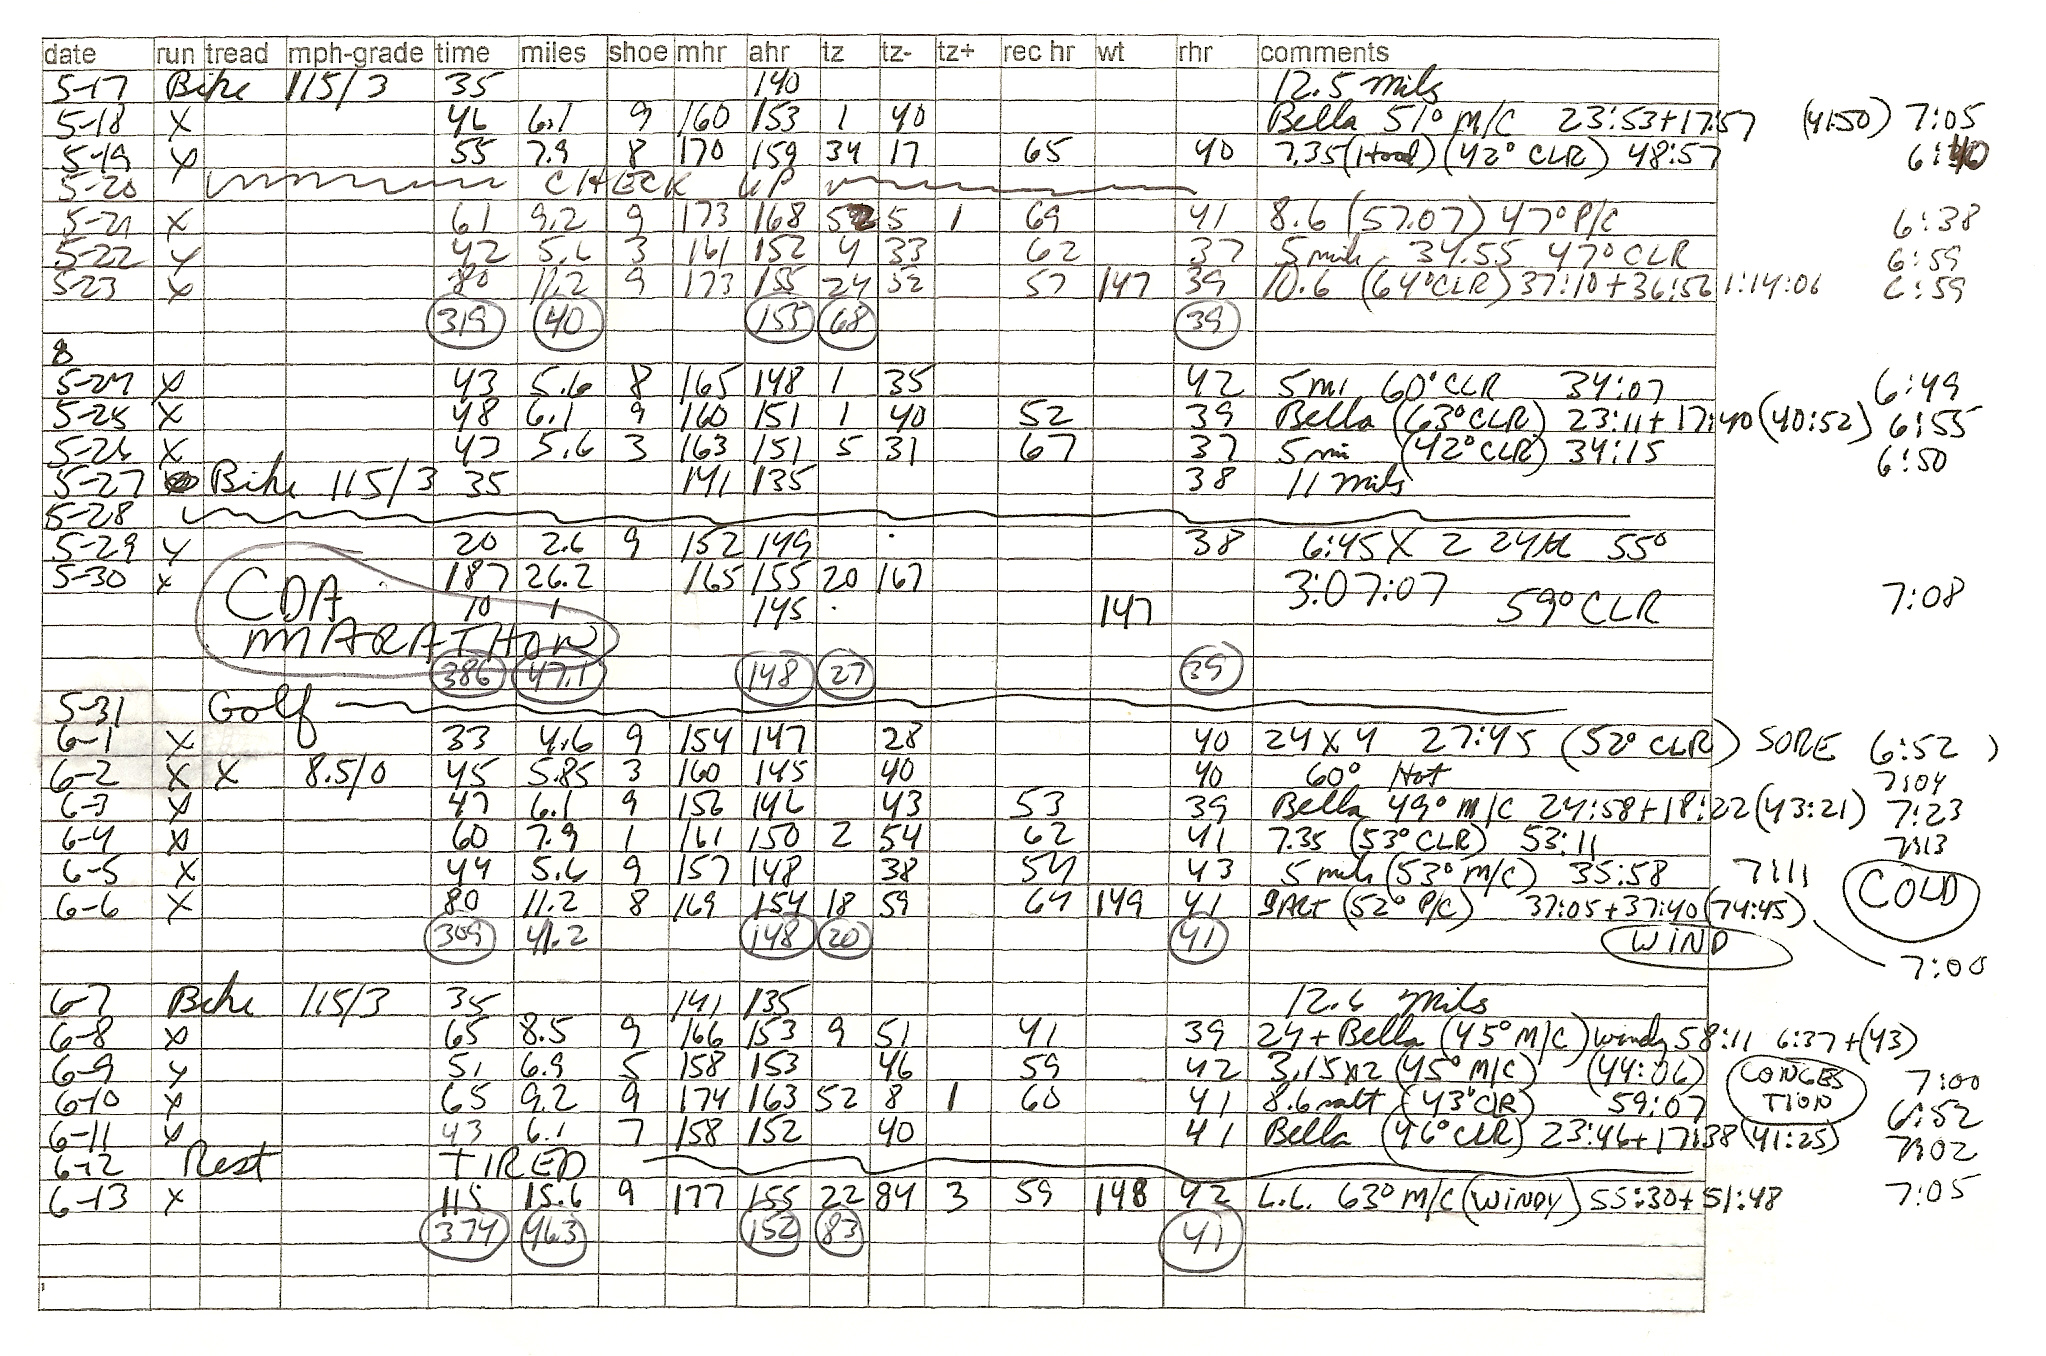 date run tread mph-grade time miles shoe mhr ahr tz tz- tz+ rec hr wt rhr comments
5-17 Bike 115/3 35 140 12.5 miles
5-18 X 46 6.1 9 160 153 1 40 Bella 51° M/C 23:53+17:57 (41:50) 7:05
5-19 X 55 7.9 8 170 159 34 17 65 40 7.35 (Hard) (42° CLR) 48:57 6:40
5-20 CHECK UP
5-21 X 61 9.2 9 173 168 52 5 1 69 41 8.6 (57.07) 47° P/C 6:38
5-22 X 42 5.6 3 161 152 4 33 62 37 5 mile 34.55 47° CLR 6:59
5-23 X 80 11.2 9 173 155 24 52 57 147 39 10.6 (64° CLR) 37:10+36:56 1:14:06 6:59
319 40 155 68 39
8
5-24 X 43 5.6 8 165 148 1 35 42 5 mi 60° CLR 34:07 6:49
5-25 X 48 6.1 9 160 151 1 40 52 39 Bella (63° CLR) 23:11+17:40 (40:52) 6:55
5-26 X 43 5.6 3 163 151 5 31 67 37 5 mi (42° CLR) 34:15 6:50
5-27 Bike 115/3 35 141 135 38 11 miles
5-28
5-29 X 20 2.6 9 152 149 38 6:45 X 2 24th 55°
5-30 X CDA 187 26.2 165 155 20 167 3:07:07 59° CLR 7:08
10 1 145 147
MARATHON
386 47.1 148 27 39
5-31 Golf
6-1 X 33 4.6 9 154 147 28 40 24 X 4 27:45 (52° CLR) SORE 6:52
6-2 X X 8.5/0 45 5.85 3 160 145 40 40 60° Hot 7:04
6-3 X 47 6.1 9 156 146 43 53 39 Bella 49° M/C 24:58+18:22 (43:21) 7:23
6-4 X 60 7.9 1 161 150 2 54 62 41 7.35 (53° CLR) 53:11 7:13
6-5 X 44 5.6 9 157 148 38 54 43 5 mile (53° M/C) 35:58 7:11
6-6 X 80 11.2 8 169 154 18 59 64 149 41 SALT (52° P/C) 37:05+37:40 (74:45) COLD
309 41.2 148 20 41 WIND 7:00
6-7 Bike 115/3 35 141 135 12.6 miles
6-8 X 65 8.5 9 166 153 9 51 41 39 24 + Bella (45° M/C) windy 58:11 6:37+(43)
6-9 X 51 6.9 5 158 153 46 59 42 3.15x2 (45° M/C) (44:06) CONGESTION 7:00
6-10 X 65 9.2 9 174 163 52 8 1 60 41 8.6 salt (43° CLR) 59:07 6:52
6-11 X 43 6.1 7 158 152 40 41 Bella (46° CLR) 23:46+17:38 (41:25) 7:02
6-12 Rest TIRED
6-13 X 115 15.6 9 177 155 22 84 3 59 148 42 L.L. 63° M/C (WINDY) 55:30+51:48 7:05
374 463 152 83 41